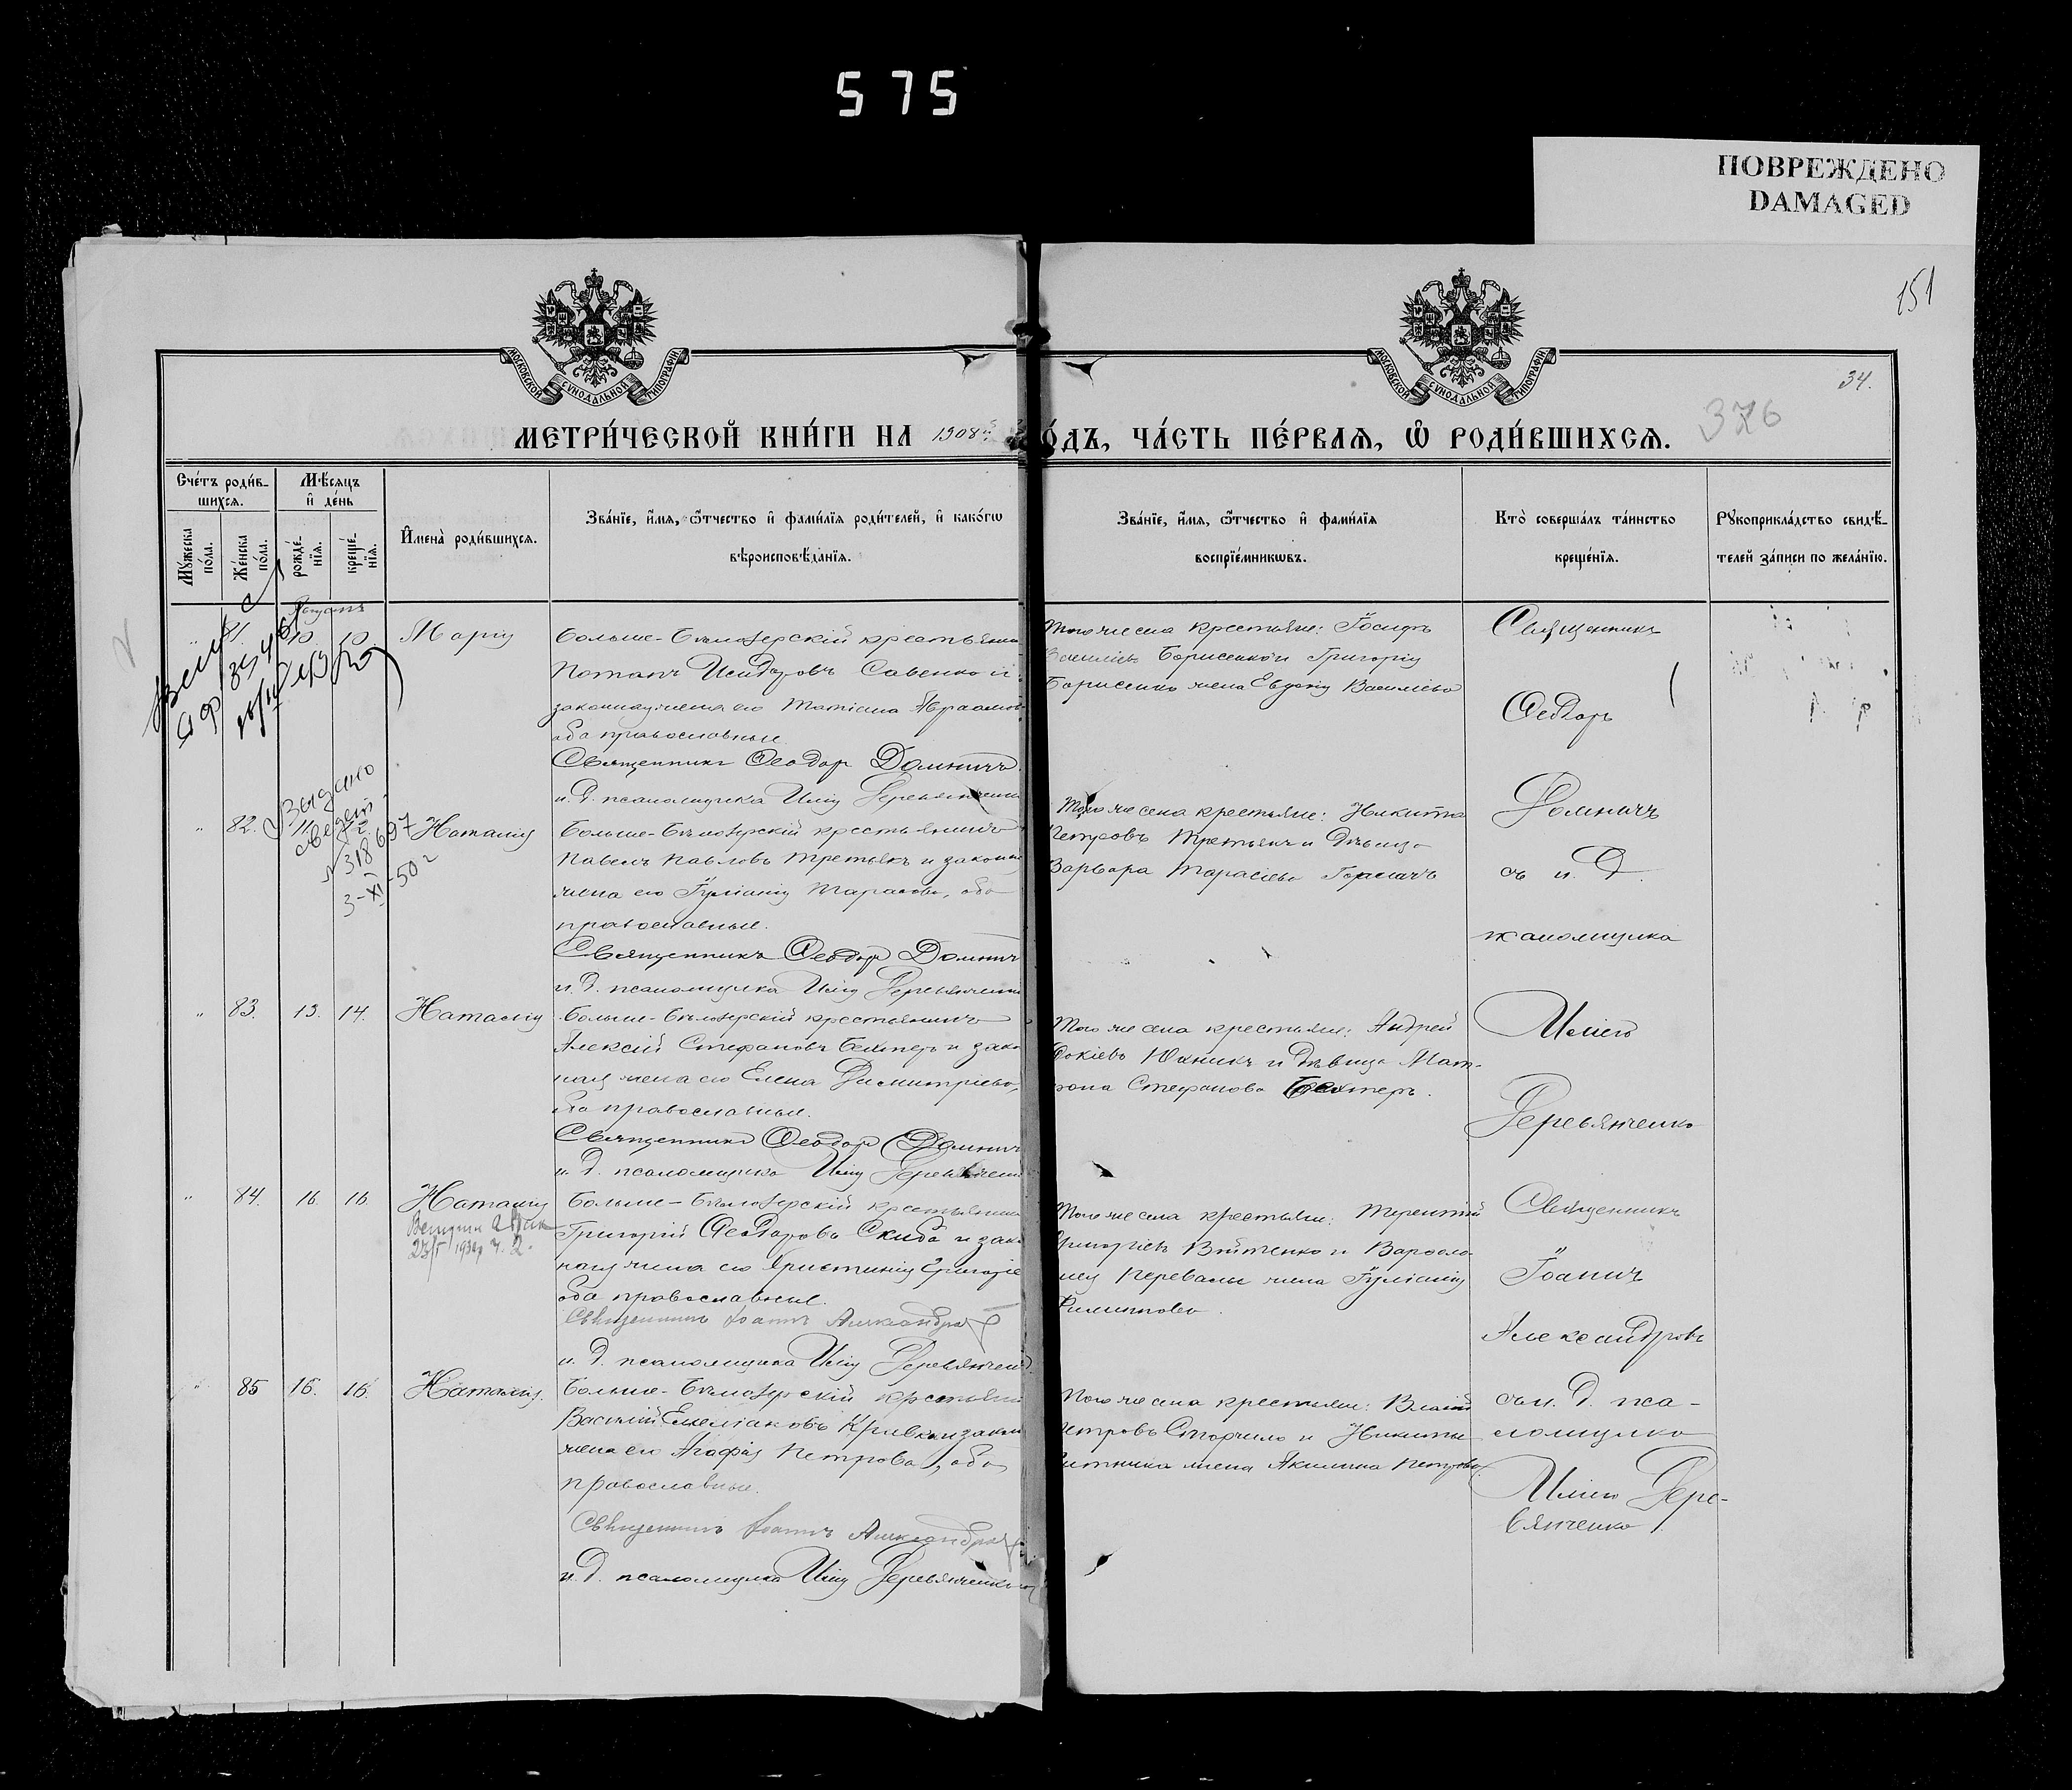 575
ПОВРЕЖДЕНО
DAMAGED
151
МОСКОВСКОЙ СУНОДАЛЬНОЙ ТИПОГРАФІИ
МОСКОВСКОЙ СУНОДАЛЬНОЙ ТИПОГРАФІИ
34.
376
МЕТРИ́ЧЕСКОЙ КНИ́ГИ НА 1908й
О́ДЪ, ЧА́СТЬ ПЕ́РВАѦ, Ѿ РОДИ́ВШИХСѦ.
Сче́тъ роди́в-
шихсѧ.
Мѣсѧцъ
и де́нь
Мꙋ́жеска по́ла.
Же́нска по́ла.
рожде́нїѧ.
креще́нїѧ.
И҆мена̀ роди́вшихсѧ.
Зва́нїе, и҆́мѧ, ѻ҆́тчество и҆ фами́лїѧ роди́телей, и҆ како́гѡ
вѣроисповѣ́данїѧ.
Зва́нїе, и҆́мѧ, ѻ҆́тчество и҆ фами́лїѧ
воспрїе́мникѡвъ.
Кто̀ соверша́лъ та́инство
креще́нїѧ.
Рꙋкоприкла́дство свидѣ́-
телей за́писи по жела́нїю.
Августъ
10 10 Марія
Больше-Бѣлозерскій крестьянинъ
Потапъ Исидоровъ Савенко и
законная жена его Татіана Авраамов
оба православные.
Священникъ Ѳеодоръ Домничъ
и. д. псаломщика Илія Деревянченко
Того же села крестьяне: Іосифъ
Васильевъ Борисенко и Григорія
Борисенко жена Евдокія Васильева
Священникъ
Ѳеодоръ
Домничъ
съ и. д.
псаломщика
Иліею
Деревянченко
Выдано
свидет.
№ 318697
3-XI-50 г
82. 11. 12. Наталія
Больше-Бѣлозерскій крестьянинъ
Павелъ Павловъ Третьякъ и законн
жена его Іуліанія Тарасова, оба
православные.
Священникъ Ѳеодоръ Домничъ
и. д. псаломщика Илія Деревянченко
Того же села крестьяне: Никита
Петровъ Третьякъ и дѣвица
Варвара Тарасіева
83. 13. 14. Наталія
Больше-Бѣлозерскій крестьянинъ
Алексій Стефановъ Бехтеръ и зако
ная жена его Елена Димитріева,
оба православные.
Священникъ Ѳеодоръ Домничъ
и. д. псаломщика Илія Деревянченко
Того же села крестьяне: Андрей
Фокіевъ Юхникъ и дѣвица Мат-
рона Стефанова Бехтеръ.
84. 16 16 Наталія
Больше-Бѣлозерскій крестьянинъ
Григорій Ѳеодоровъ Скиба и зако
ная жена его Христинія Григоріе
оба православные.
Священникъ Іоаннъ Александровъ
и. д. псаломщика Илія Деревянченко
Того же села крестьяне: Терентій
Григоріевъ Войтенко и Варѳоло-
мея Перевалы жена Іуліанія
Филиппова.
Священникъ
Іоаннъ
Александровъ
съ и. д. пса-
ломщика
Иліею Дере-
вянченко
85 15. 16. Наталія.
Больше-Бѣлозерскій крестьянин
Василій Емеліановъ Кривко и закон
жена его Агафія Петрова, оба
православные.
Священникъ Іоаннъ Александровъ
и. д. псаломщика Илія Деревянченко
Того же села крестьяне: Власій
Петровъ Сторчило и Никиты
жена Акилина Петрова